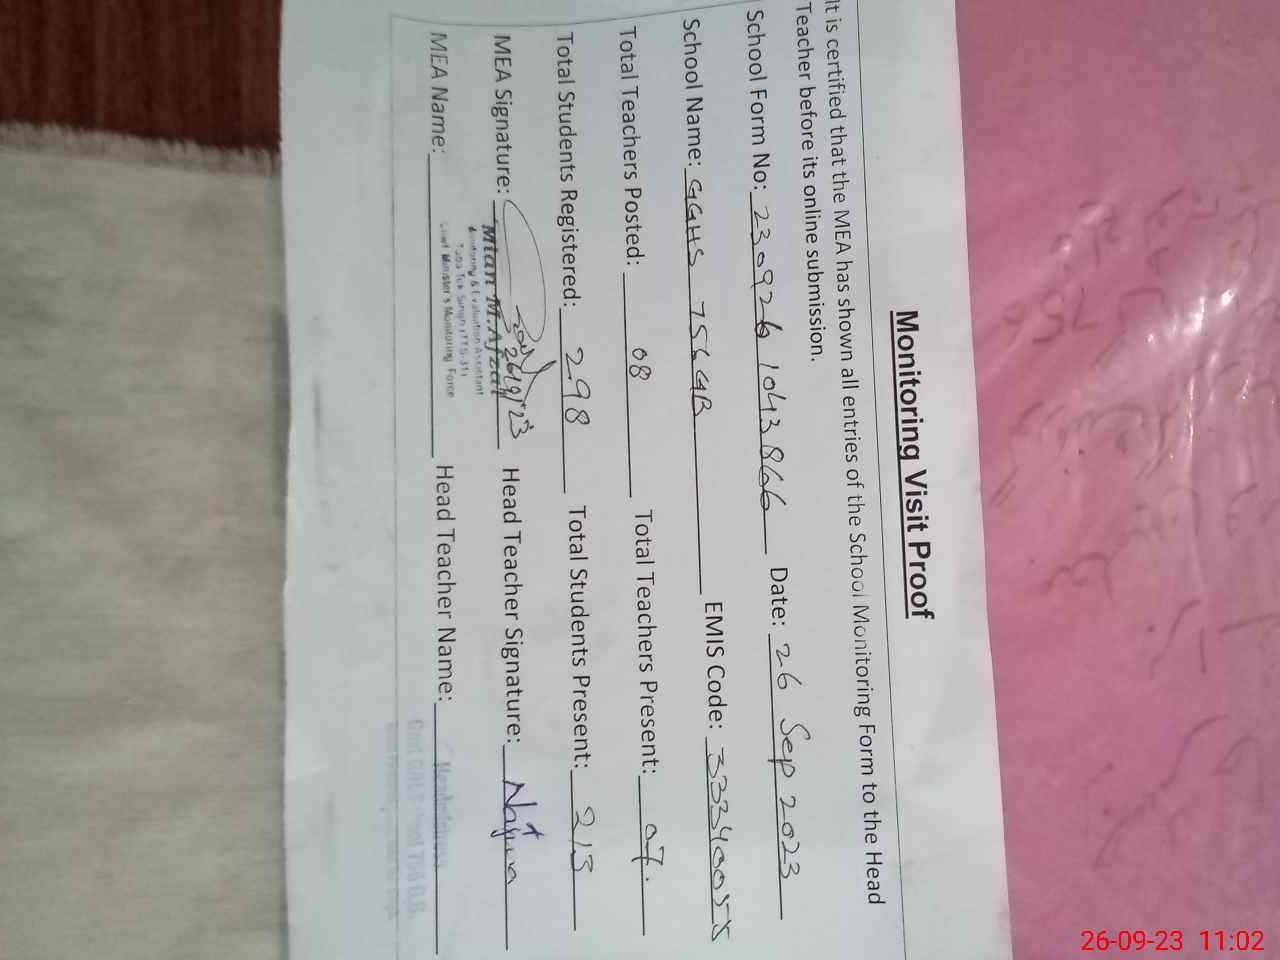 Monitoring Visit Proof
It is certified that the MEA has shown all entries of the School Monitoring Form to the Head
Teacher before its online submission.
School Form No: 230926 1043866 Date: 26 Sep 2023
School Name: GGHS 756 GB EMIS Code: 33340055
Total Teachers Posted: 08 Total Teachers Present: 07.
Total Students Registered: 298 Total Students Present: 213
MEA Signature: 26/9/23 Head Teacher Signature: Najma
Mian M. Afzal
Monitoring & Evaluation Assistant
Toba Tek Singh (TTS-31)
Chief Minister's Monitoring Force
MEA Name: Head Teacher Name:
Headmistress
26-09-23 11:02